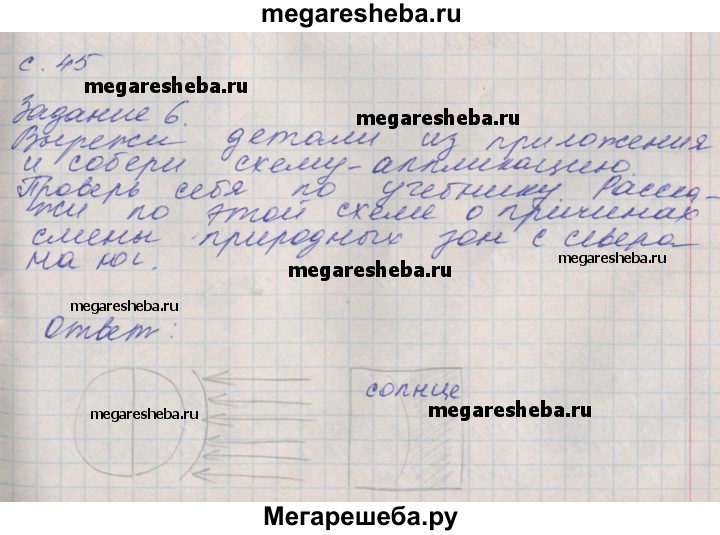 megaresheba.ru
с. 45
megaresheba.ru
Задание 6.
megaresheba.ru
Вырежи детали из приложения
и собери схему-аппликацию.
Проверь себя по учебнику. Расска-
жи по этой схеме о причинах
смены природных зон с севера
на юг.
megaresheba.ru
megaresheba.ru
megaresheba.ru
Ответ:
солнце
megaresheba.ru
megaresheba.ru
Мегарешеба.ру